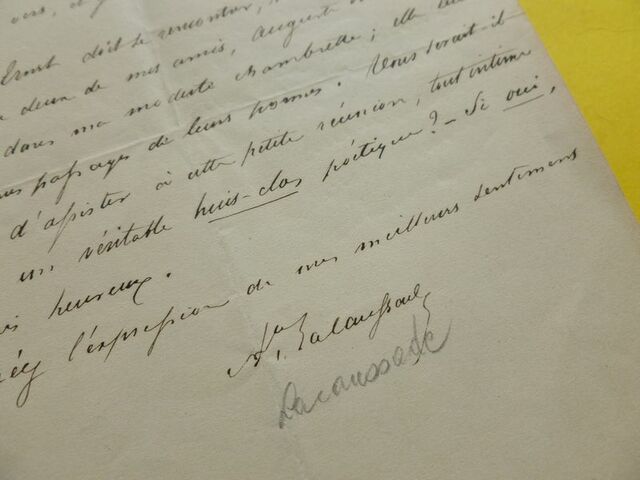 vers, et
Ernst doit se rencontrer,
deux de mes amis, Auguste
dans ma modeste chambrette ; elle
passages de leurs poèmes. Vous serait-il
d'assister à cette petite réunion, tout intime
un véritable huis-clos poétique ? - Si oui,
heureux.
l'expression de mes meilleurs sentiments
Aug. Lacaussade
Lacaussade